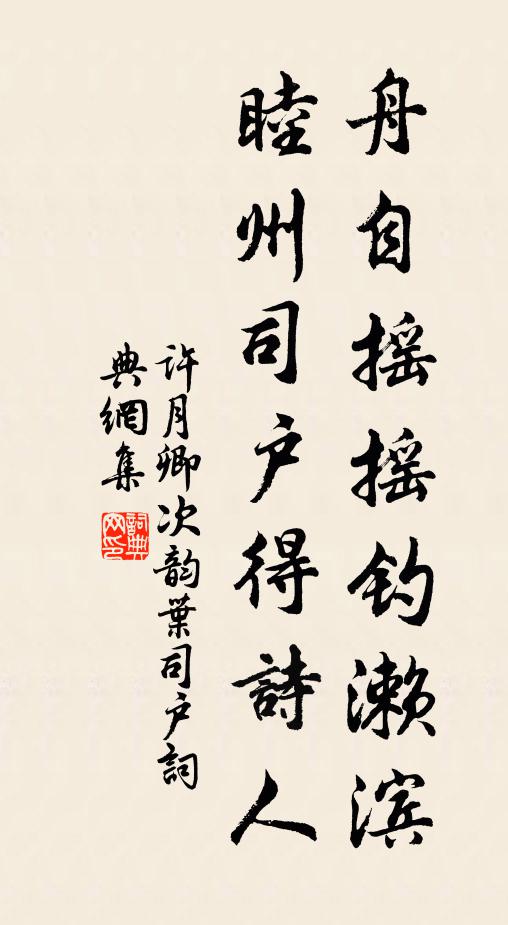 舟自摇摇钓濑滨
睦州司户得詩人
许月卿次韵葉司户詞
典網集
詞典
网印